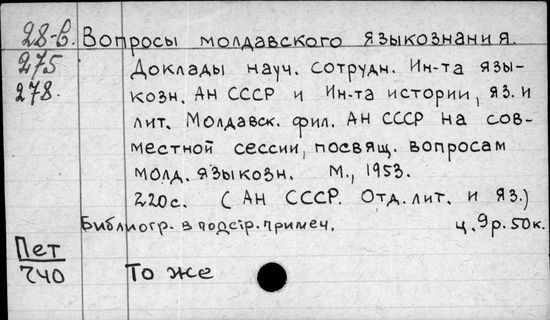 28-6. Вопросы молдавского языкознания.
275 Доклады науч. сотрудн. Ин-та язы-
278. козн. АН СССР и Ин-та истории, яз. и
лит. Молдавск. фил. АН СССР на сов-
местной сессии, посвящ. вопросам
молд. языкозн. М., 1953.
220с. (АН СССР. Отд. лит. и яз.)
Библиогр. в подстр. примеч. ц. 9р. 50к.
Пет
740 То же